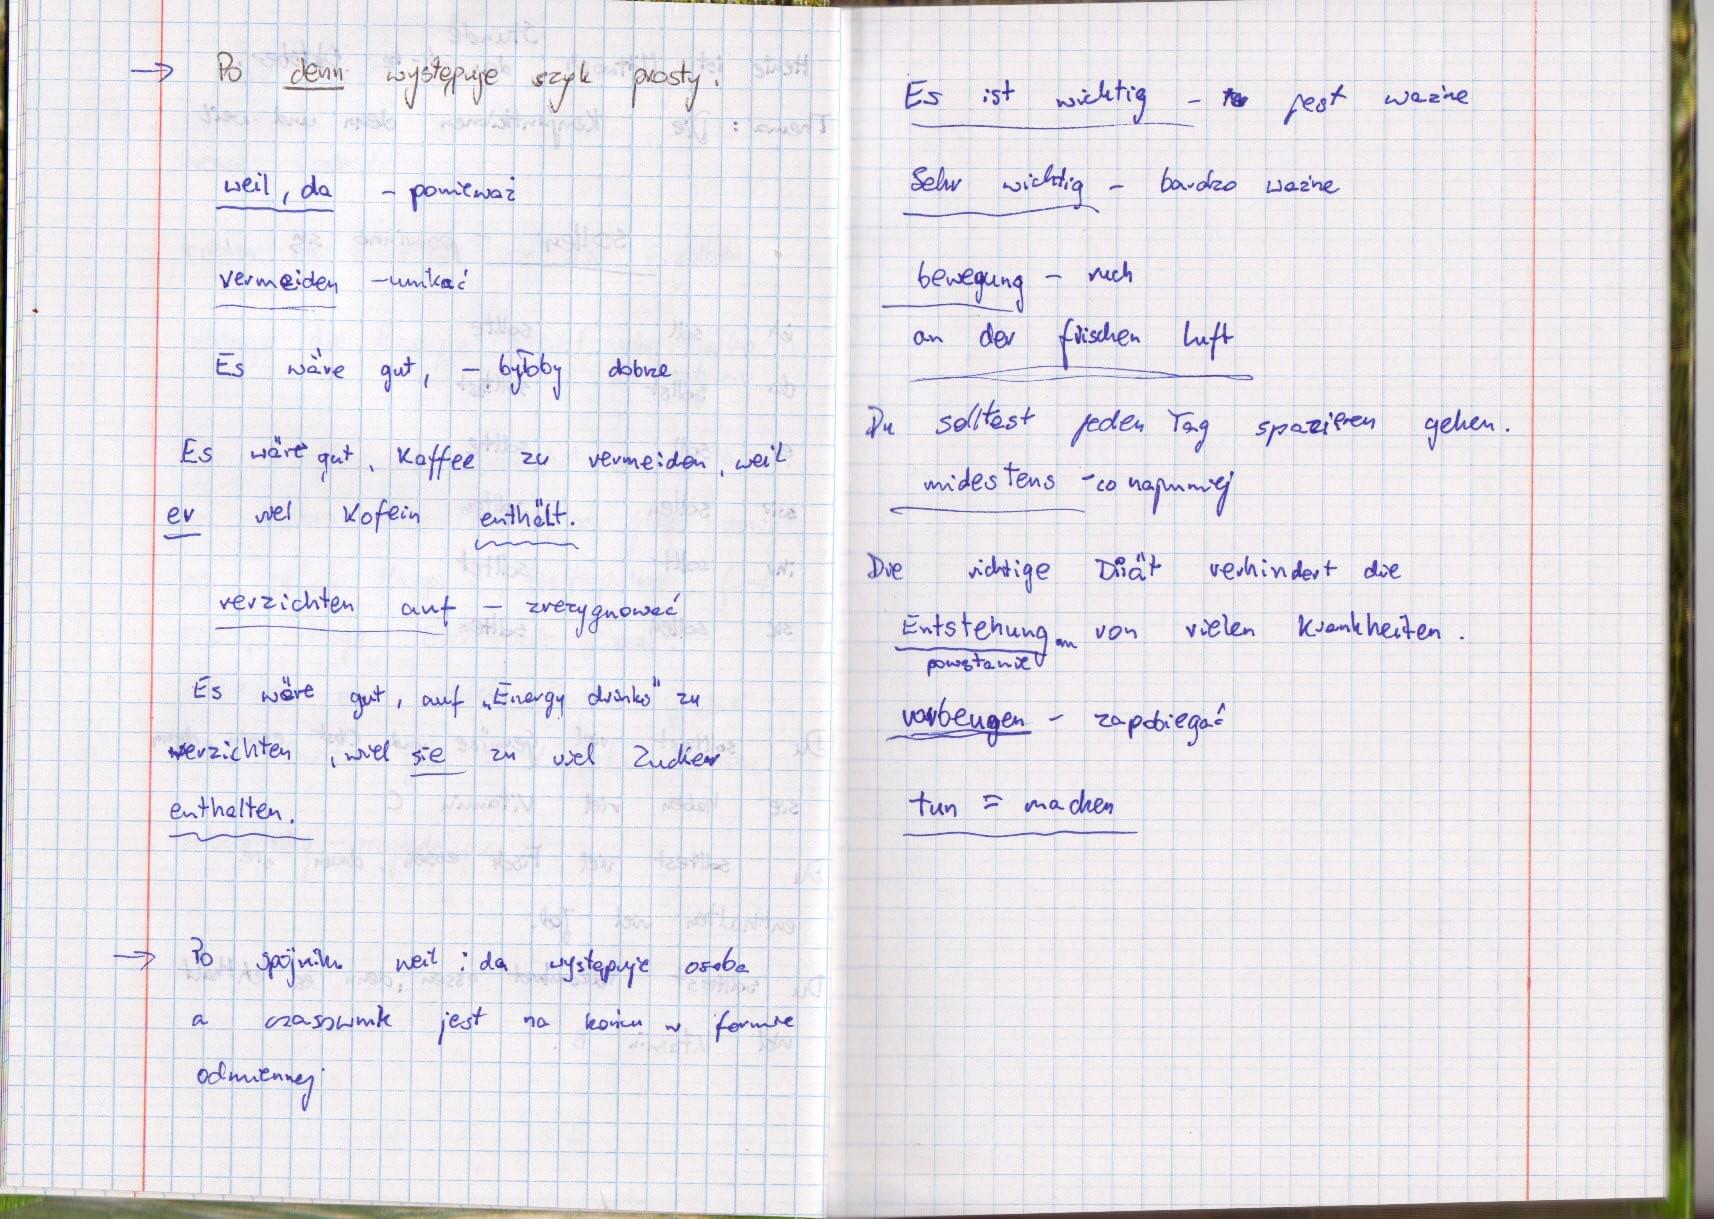 → Po denn występuje szyk prosty.
weil, da - ponieważ
vermeiden - unikać
Es wäre gut, - byłoby dobrze
Es wäre gut, Kaffee zu vermeiden, weil
er viel Kofein enthält.
verzichten auf - zrezygnować
Es wäre gut, auf „Energy drinks" zu
verzichten, wiel sie zu viel Zucker
enthalten.
→ Po spójniku weil i da występuje osoba
a czasownik jest na końcu w formie
odmiennej
Es ist wichtig - jest ważne
Sehr wichtig - bardzo ważne
bewegung - ruch
an der frischen luft
Du solltest jeden Tag spazieren gehen.
midestens - co najmniej
Die richtige Diät verhindert die
Entstehung von vielen Krankheiten.
powstanie
vorbeugen - zapobiegać
tun = machen